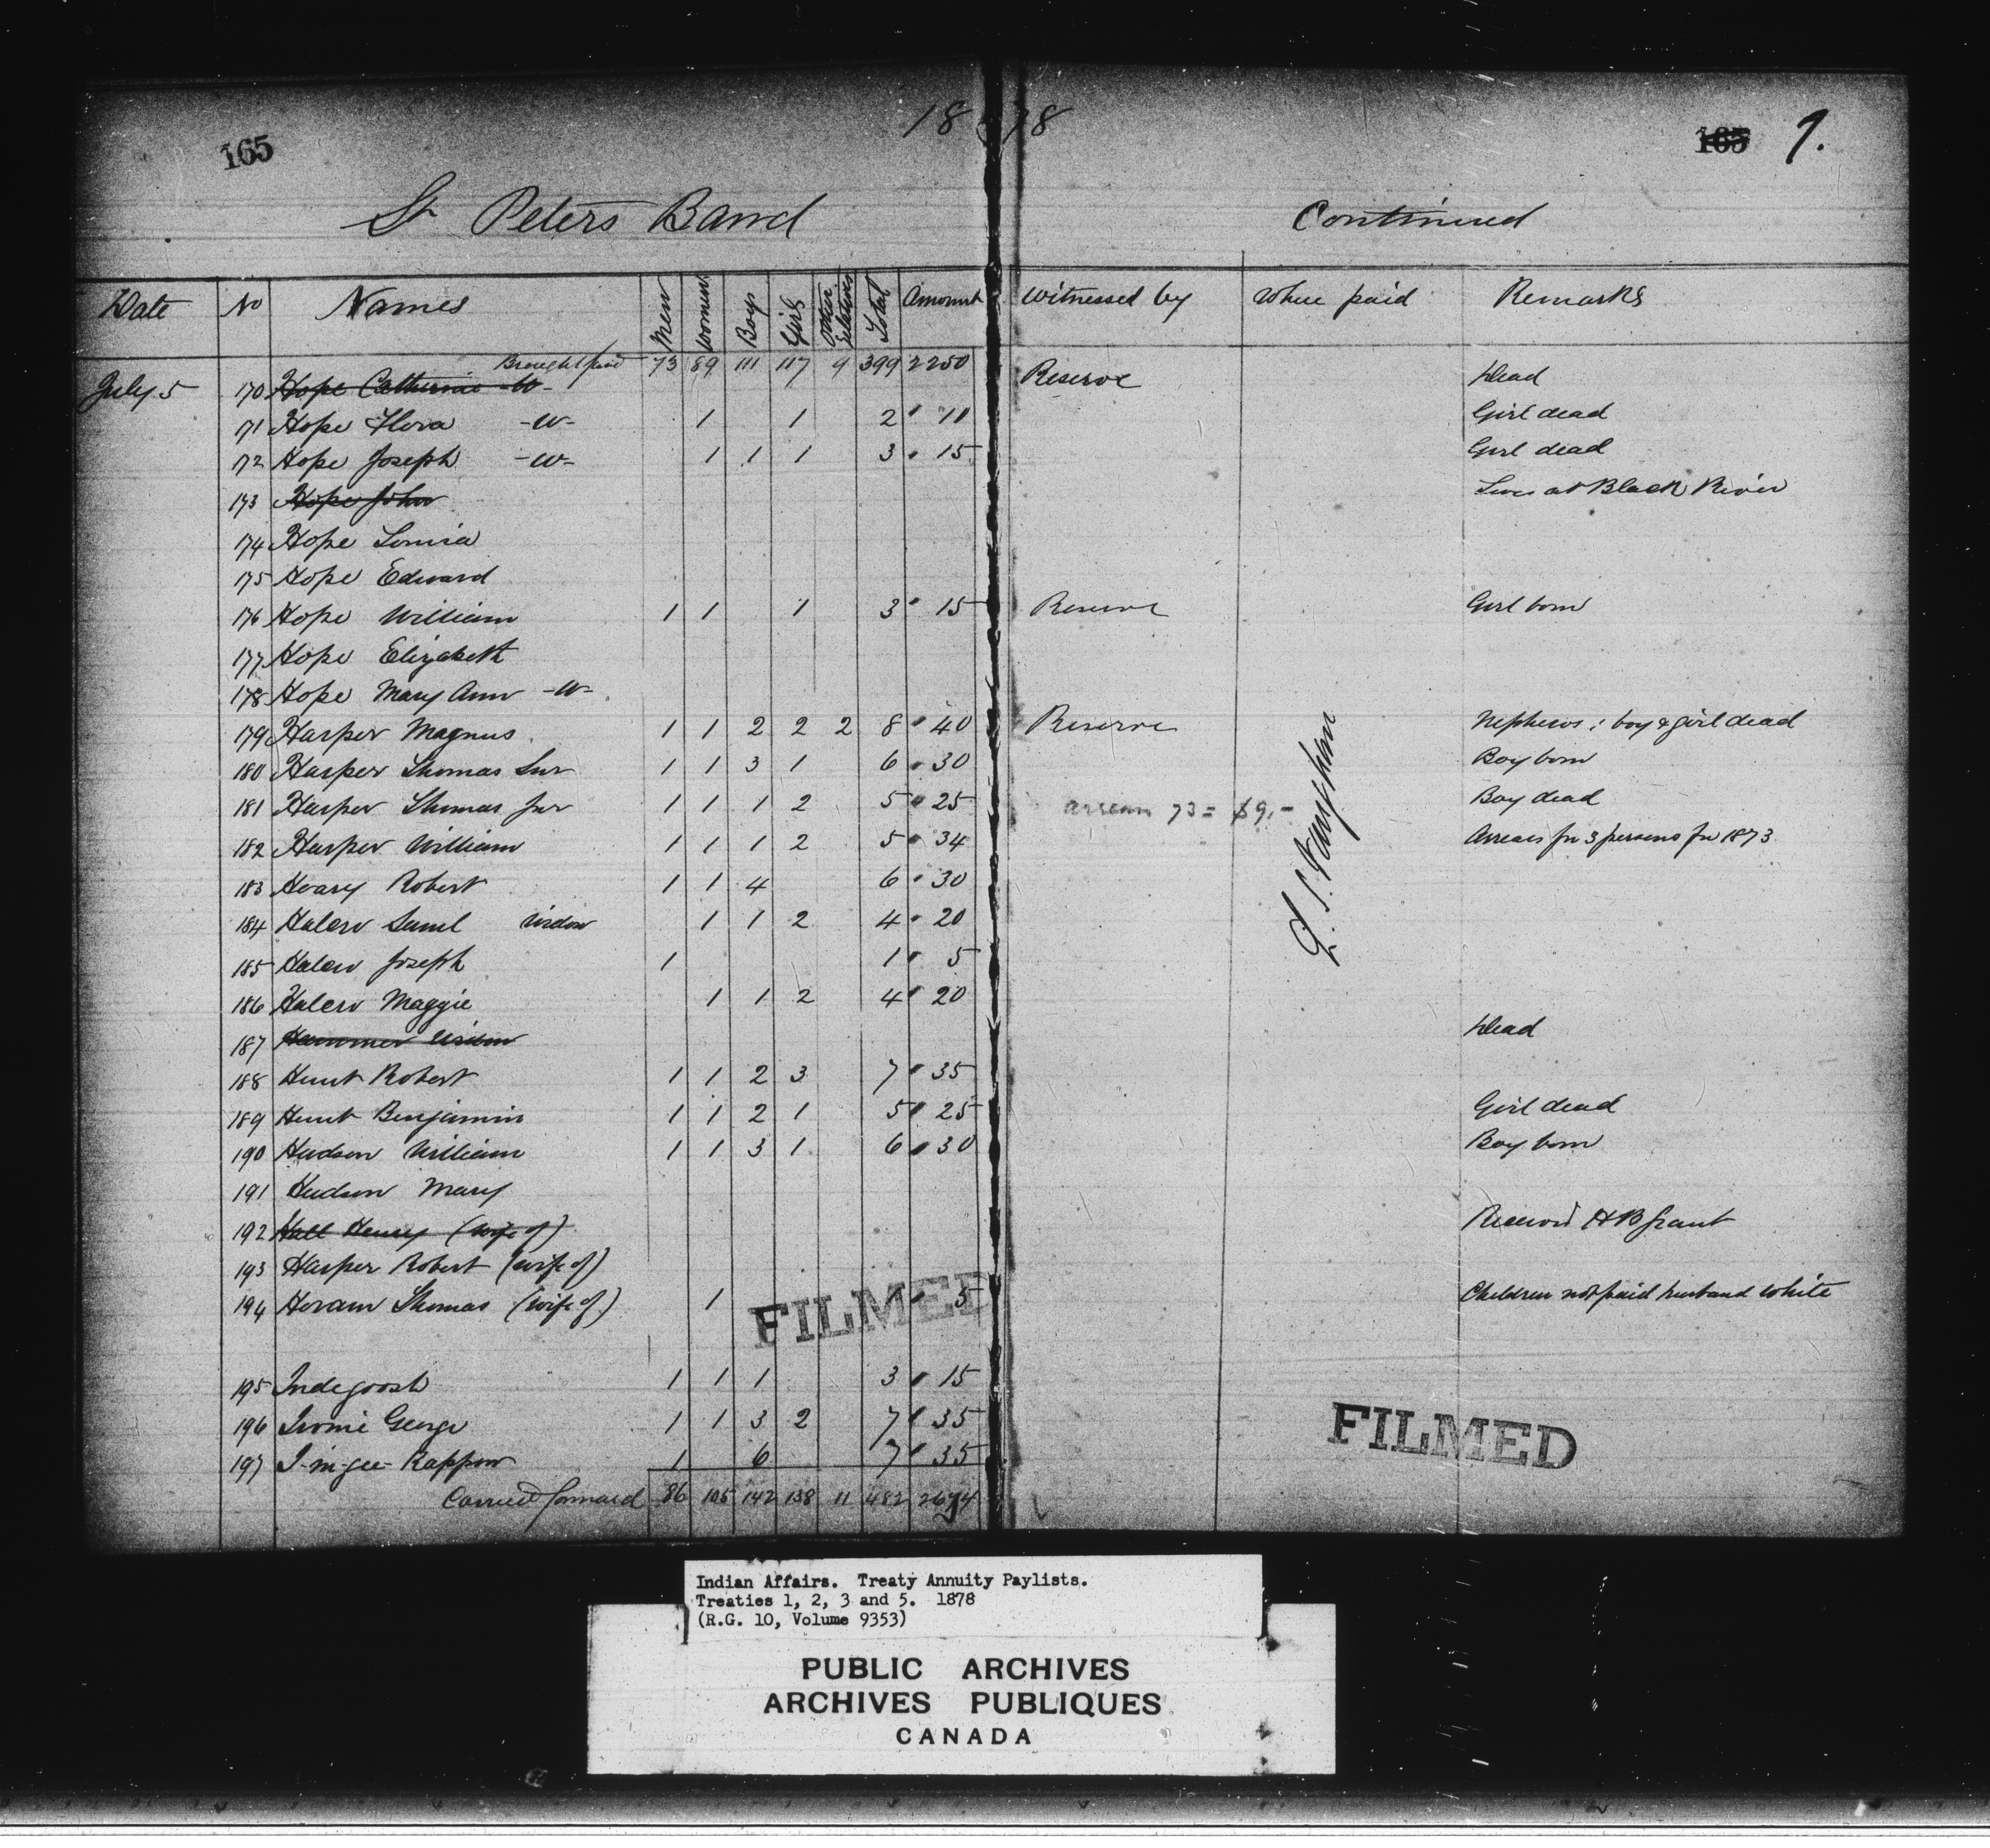 1878
165 165 9.
St Peters Band Continued
Date No Names Men Women Boys Girls Other Relatives Total Amount Witnessed by Where paid Remarks
Brought forwd 73 89 111 117 9 399 2250
July 5 170 Hope Catherine -W- Reserve Dead
171 Hope Flora -W- 1 1 2 10 Girl dead
172 Hope Joseph -W- 1 1 1 3 15 Girl dead
173 Hope John Lives at Black River
174 Hope Louisa
175 Hope Edward
176 Hope William 1 1 1 3 15 Reserve Girl born
177 Hope Elizabeth
178 Hope Mary Ann -W-
179 Harper Magnus 1 1 2 2 2 8 40 Reserve Nephews: boy & girl dead
180 Harper Thomas Snr 1 1 3 1 6 30 Boy born
181 Harper Thomas Jnr 1 1 1 2 5 25 Boy dead
arrears 73 = $9.-
182 Harper William 1 1 1 2 5 34 Arrears for 3 persons for 1873
183 Hoary Robert 1 1 4 6 30
184 Halcro Saml Widow 1 1 2 4 20
185 Halcro Joseph 1 1 5
186 Halcro Maggie 1 1 2 4 20
187 Hammer Widow Dead
188 Hunt Robert 1 1 2 3 7 35
189 Hunt Benjamin 1 1 2 1 5 25 Girl dead
190 Hudson William 1 1 3 1 6 30 Boy born
191 Hudson Mary
192 Hall Henry (wife of) Received HB Grant
193 Harper Robert (wife of)
194 Thomas (wife of) 1 5 Children not paid husband White
FILMED
195 Indegoosh 1 1 1 3 15
196 George 1 1 3 2 7 35
197 1 6 7 35
FILMED
Carried forward 86 105 142 138 11 482 2674
Indian Affairs. Treaty Annuity Paylists.
Treaties 1, 2, 3 and 5. 1878
(R.G. 10, Volume 9353)
PUBLIC ARCHIVES
ARCHIVES PUBLIQUES
CANADA